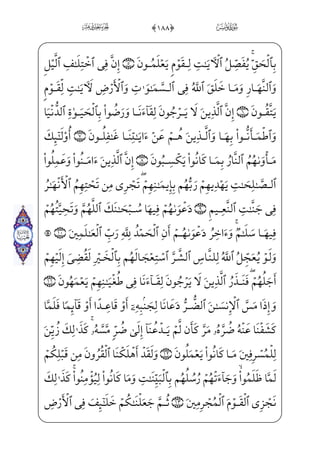 ﴿١٨٨﴾
بِٱلْحَقِّ ۚ يُفَصِّلُ ٱلْـَٔايَـٰتِ لِقَوْمٍ يَعْلَمُونَ ۝ إِنَّ فِى ٱخْتِلَـٰفِ ٱلَّيْلِ
وَٱلنَّهَارِ وَمَا خَلَقَ ٱللَّهُ فِى ٱلسَّمَـٰوَٰتِ وَٱلْأَرْضِ لَـَٔايَـٰتٍ لِّقَوْمٍ
يَتَّقُونَ ۝ إِنَّ ٱلَّذِينَ لَا يَرْجُونَ لِقَآءَنَا وَرَضُوا۟ بِٱلْحَيَوٰةِ ٱلدُّنْيَا
وَٱطْمَأَنُّوا۟ بِهَا وَٱلَّذِينَ هُمْ عَنْ ءَايَـٰتِنَا غَـٰفِلُونَ ۝ أُو۟لَـٰٓئِكَ
مَأْوَىٰهُمُ ٱلنَّارُ بِمَا كَانُوا۟ يَكْسِبُونَ ۝ إِنَّ ٱلَّذِينَ ءَامَنُوا۟ وَعَمِلُوا۟
ٱلصَّـٰلِحَـٰتِ يَهْدِيهِمْ رَبُّهُم بِإِيمَـٰنِهِمْ ۖ تَجْرِى مِن تَحْتِهِمُ ٱلْأَنْهَـٰرُ
فِى جَنَّـٰتِ ٱلنَّعِيمِ ۝ دَعْوَىٰهُمْ فِيهَا سُبْحَـٰنَكَ ٱللَّهُمَّ وَتَحِيَّتُهُمْ
فِيهَا سَلَـٰمٌ ۚ وَءَاخِرُ دَعْوَىٰهُمْ أَنِ ٱلْحَمْدُ لِلَّهِ رَبِّ ٱلْعَـٰلَمِينَ ۝
وَلَوْ يُعَجِّلُ ٱللَّهُ لِلنَّاسِ ٱلشَّرَّ ٱسْتِعْجَالَهُم بِٱلْخَيْرِ لَقُضِىَ إِلَيْهِمْ
أَجَلُهُمْ ۖ فَنَذَرُ ٱلَّذِينَ لَا يَرْجُونَ لِقَآءَنَا فِى طُغْيَـٰنِهِمْ يَعْمَهُونَ ۝
وَإِذَا مَسَّ ٱلْإِنسَـٰنَ ٱلضُّرُّ دَعَانَا لِجَنۢبِهِۦٓ أَوْ قَاعِدًا أَوْ قَآئِمًا فَلَمَّا
كَشَفْنَا عَنْهُ ضُرَّهُۥ مَرَّ كَأَن لَّمْ يَدْعُنَآ إِلَىٰ ضُرٍّ مَّسَّهُۥ ۚ كَذَٰلِكَ زُيِّنَ
لِلْمُسْرِفِينَ مَا كَانُوا۟ يَعْمَلُونَ ۝ وَلَقَدْ أَهْلَكْنَا ٱلْقُرُونَ مِن قَبْلِكُمْ
لَمَّا ظَلَمُوا۟ ۙ وَجَآءَتْهُمْ رُسُلُهُم بِٱلْبَيِّنَـٰتِ وَمَا كَانُوا۟ لِيُؤْمِنُوا۟ ۚ كَذَٰلِكَ
نَجْزِى ٱلْقَوْمَ ٱلْمُجْرِمِينَ ۝ ثُمَّ جَعَلْنَـٰكُمْ خَلَـٰٓئِفَ فِى ٱلْأَرْضِ